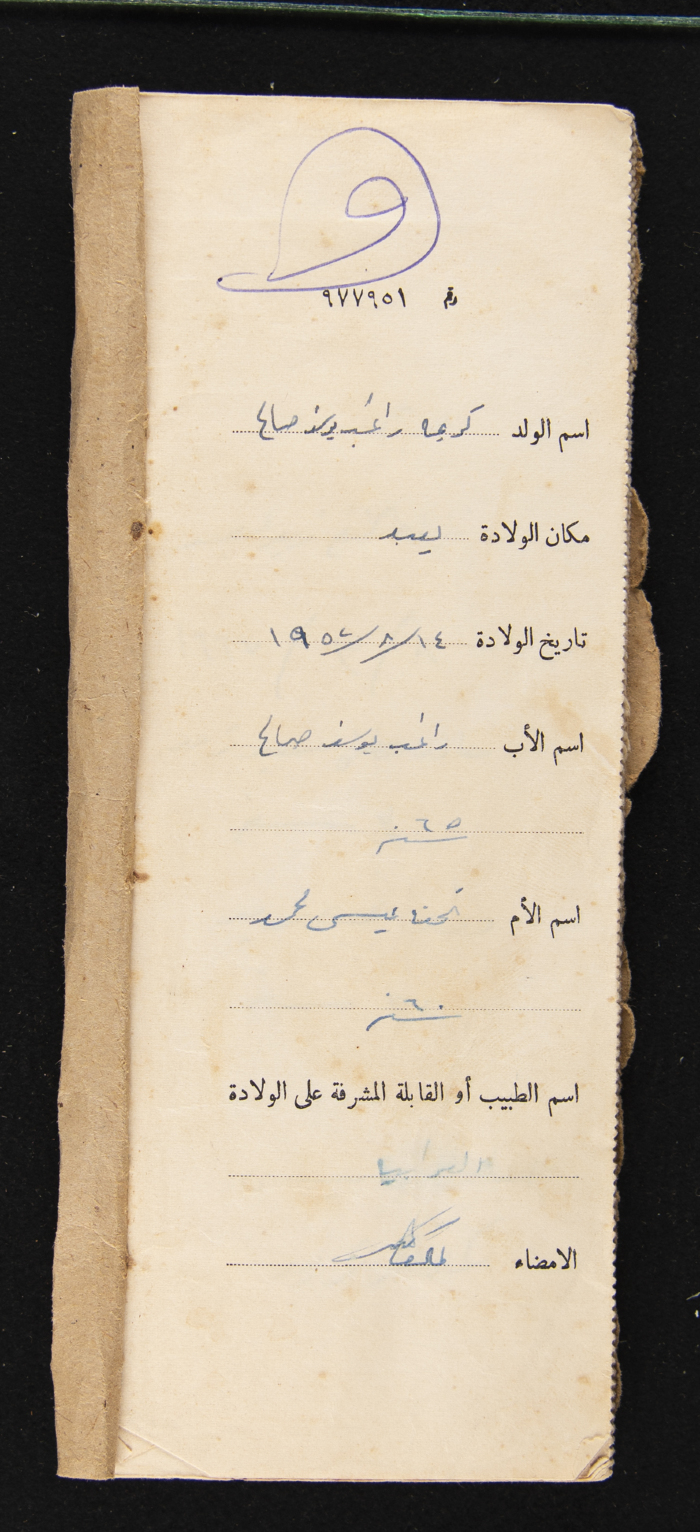 و
رقم ٩٧٧٩٥١
اسم الولد راغب يوسف صالح
مكان الولادة يعبد
تاريخ الولادة ١٤/٨/١٩٥٢
اسم الأب راغب يوسف صالح
٦٥ سنة
اسم الأم عيسى محمد
٦٠ سنة
اسم الطبيب أو القابلة المشرفة على الولادة
الامضاء